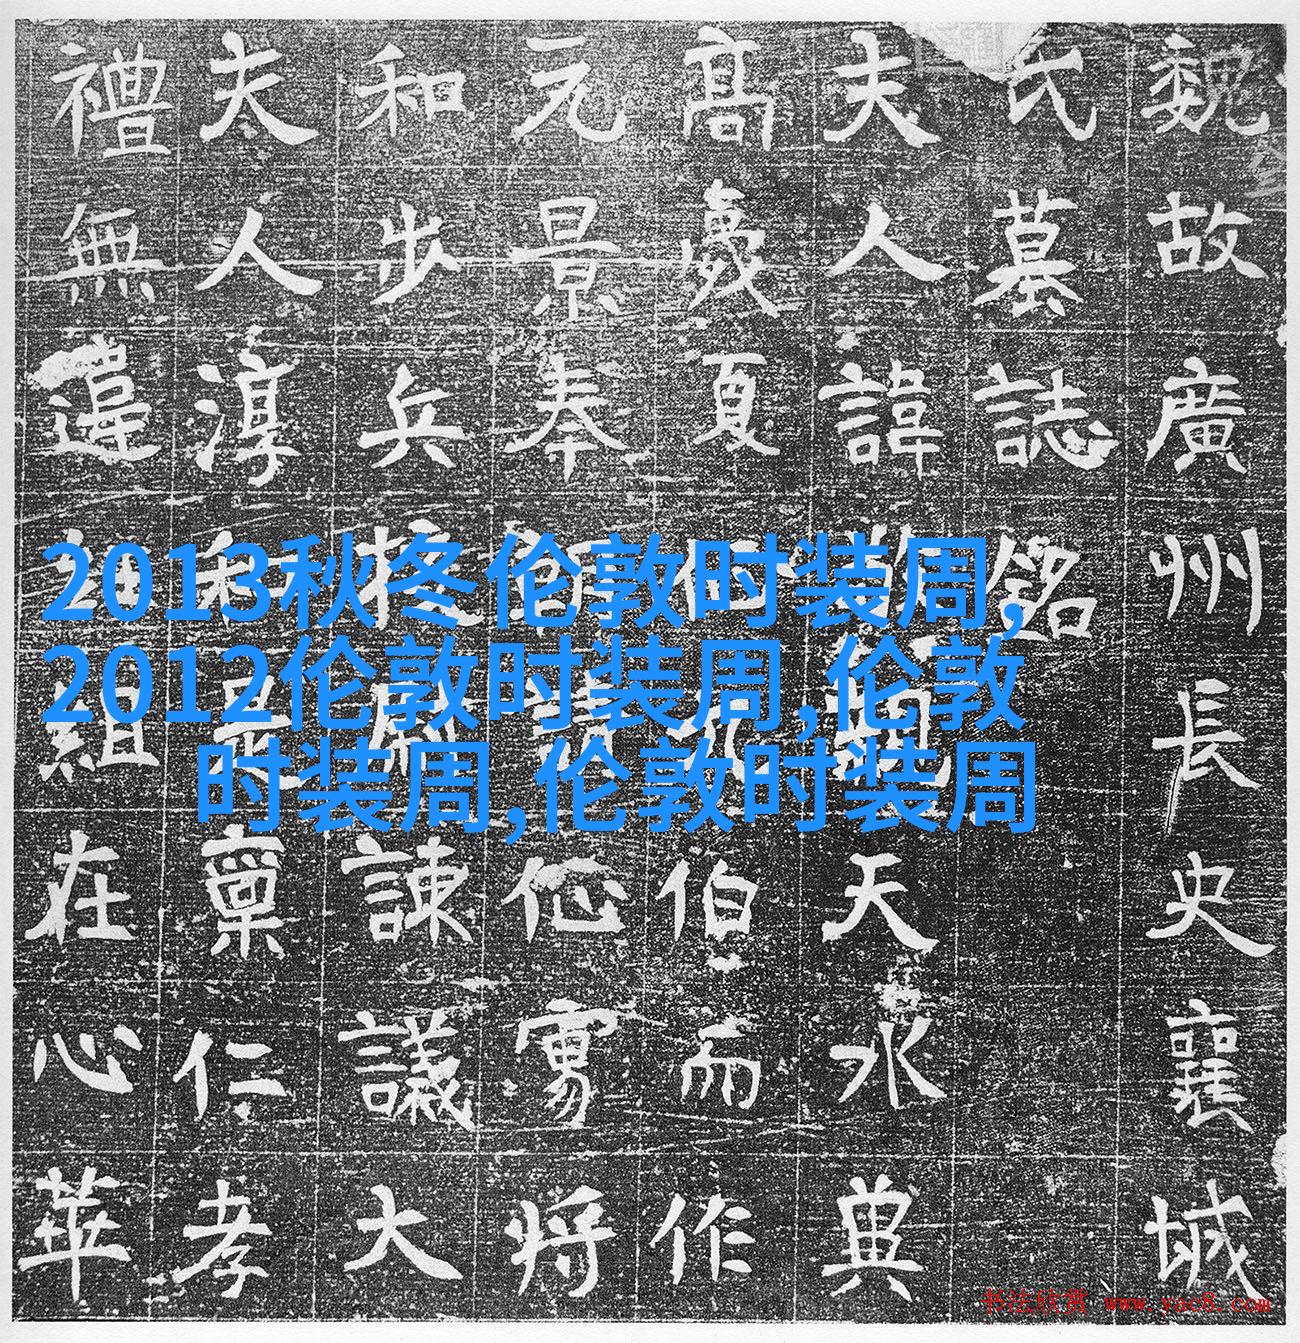 魏故廣州長史襄城
氏墓誌銘
夫人諱天水典
高夏伯而作
元景奉將
和步兵校尉諫議大
夫人淳和是稟仁孝
禮無違組在心華
2013秋冬伦敦时装周,
2012伦敦时装周,伦敦
时装周,伦敦时装周
书法欣赏 www.yac8.com